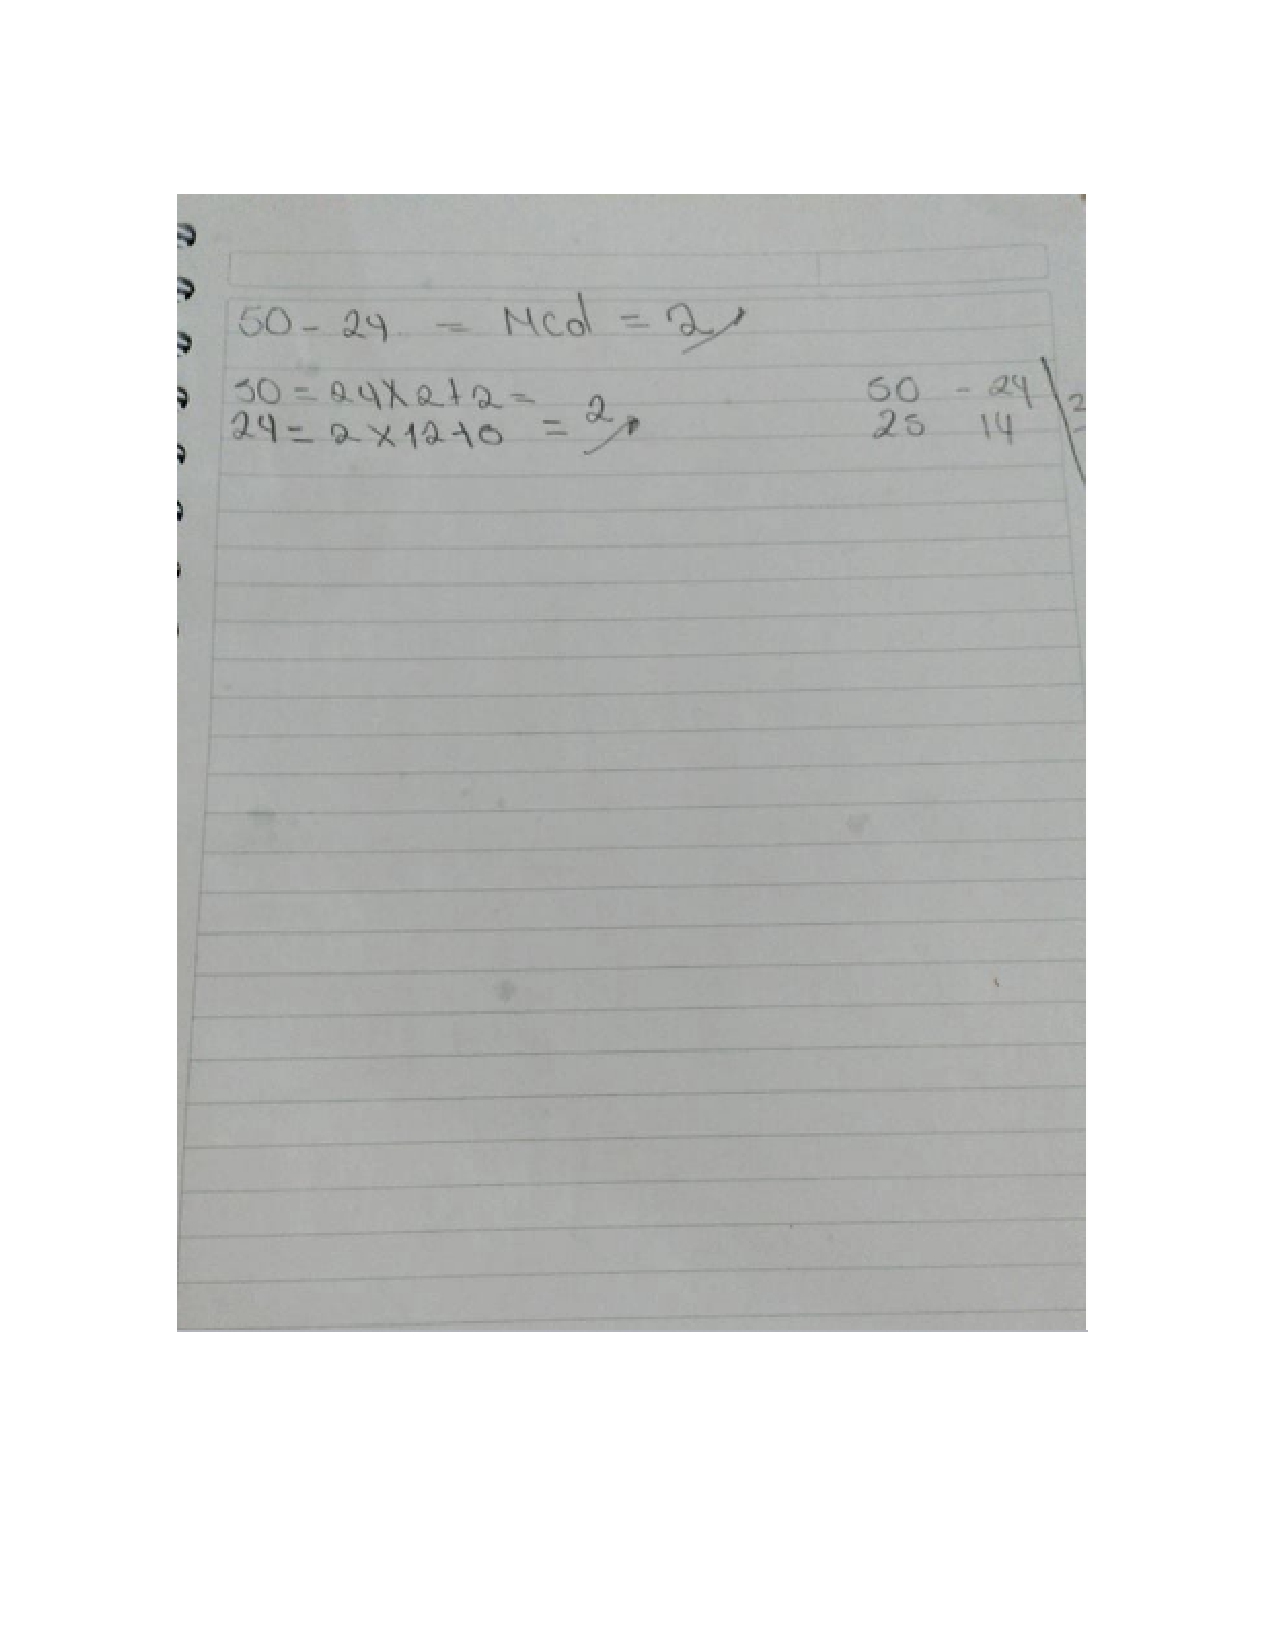 50 - 24 = Mcd = 2
50 = 24 x 2 + 2 =
24 = 2 x 12 + 0 = 2
50 - 24 | 2
25 14